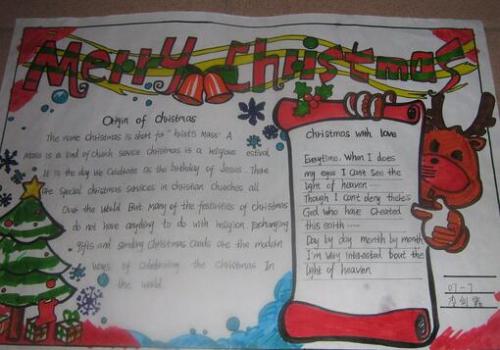 Merry Christmas
Origin of Christmas
The name Christmas is short for "Christ's Mass". A
mass is a kind of church service Christmas is a religious estival
It is the day we celebrate as the birthday of Jesus. There
are Special christmas services in christian churches all
Over the World. But many of the festivities of christmas
do not have anything to do with religion. Exchanging
gifts and sending Christmas cards are the modern
ways of celebrating the Christmas In
the world.
Christmas with love
Everytime. When I does
my eyes I can't see the
light of heaven
Though I can't deny there's
God who have created
this earth
Day by day month by month
I'm very interested bout the
light of heaven
07-7